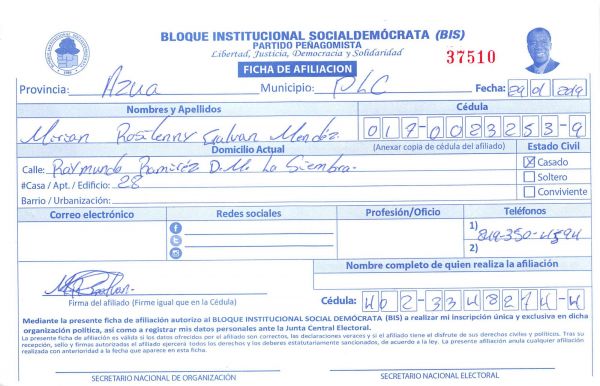 BLOQUE INSTITUCIONAL SOCIALDEMÓCRATA (BIS)
PARTIDO PEÑAGOMISTA
Libertad, Justicia, Democracia y Solidaridad
37510
FICHA DE AFILIACION
Provincia: Azua Municipio: PLC Fecha: 29 01 2019
Nombres y Apellidos Cédula
Mirian Rosilenny Galvan Mendez 017-0023253-9
Domicilio Actual (Anexar copia de cédula del afiliado) Estado Civil
Calle: Raymundo Ramirez D.M. La Siembra. Casado
#Casa / Apt. / Edificio: 28 Soltero
Barrio / Urbanización: Conviviente
Correo electrónico Redes sociales Profesión/Oficio Teléfonos
1) 849-350-4594
2)
Nombre completo de quien realiza la afiliación
Firma del afiliado (Firme igual que en la Cédula) Cédula: 402-3348274-4
Mediante la presente ficha de afiliación autorizo al BLOQUE INSTITUCIONAL SOCIAL DEMÓCRATA (BIS) a realizar mi inscripción única y exclusiva en dicha
organización política, así como a registrar mis datos personales ante la Junta Central Electoral.
La presente ficha de afiliación es válida si los datos ofrecidos por el afiliado son correctos, las declaraciones veraces y si el afiliado tiene el disfrute de sus derechos civiles y políticos. Tras su
recepción, sello y firmas autorizadas el afiliado ejercerá todos los derechos y los deberes estatutariamente sancionados, de acuerdo a la ley. La presente afiliación anula cualquier afiliación
realizada con anterioridad a la fecha que aparece en esta ficha.
SECRETARIO NACIONAL DE ORGANIZACIÓN SECRETARIO NACIONAL ELECTORAL